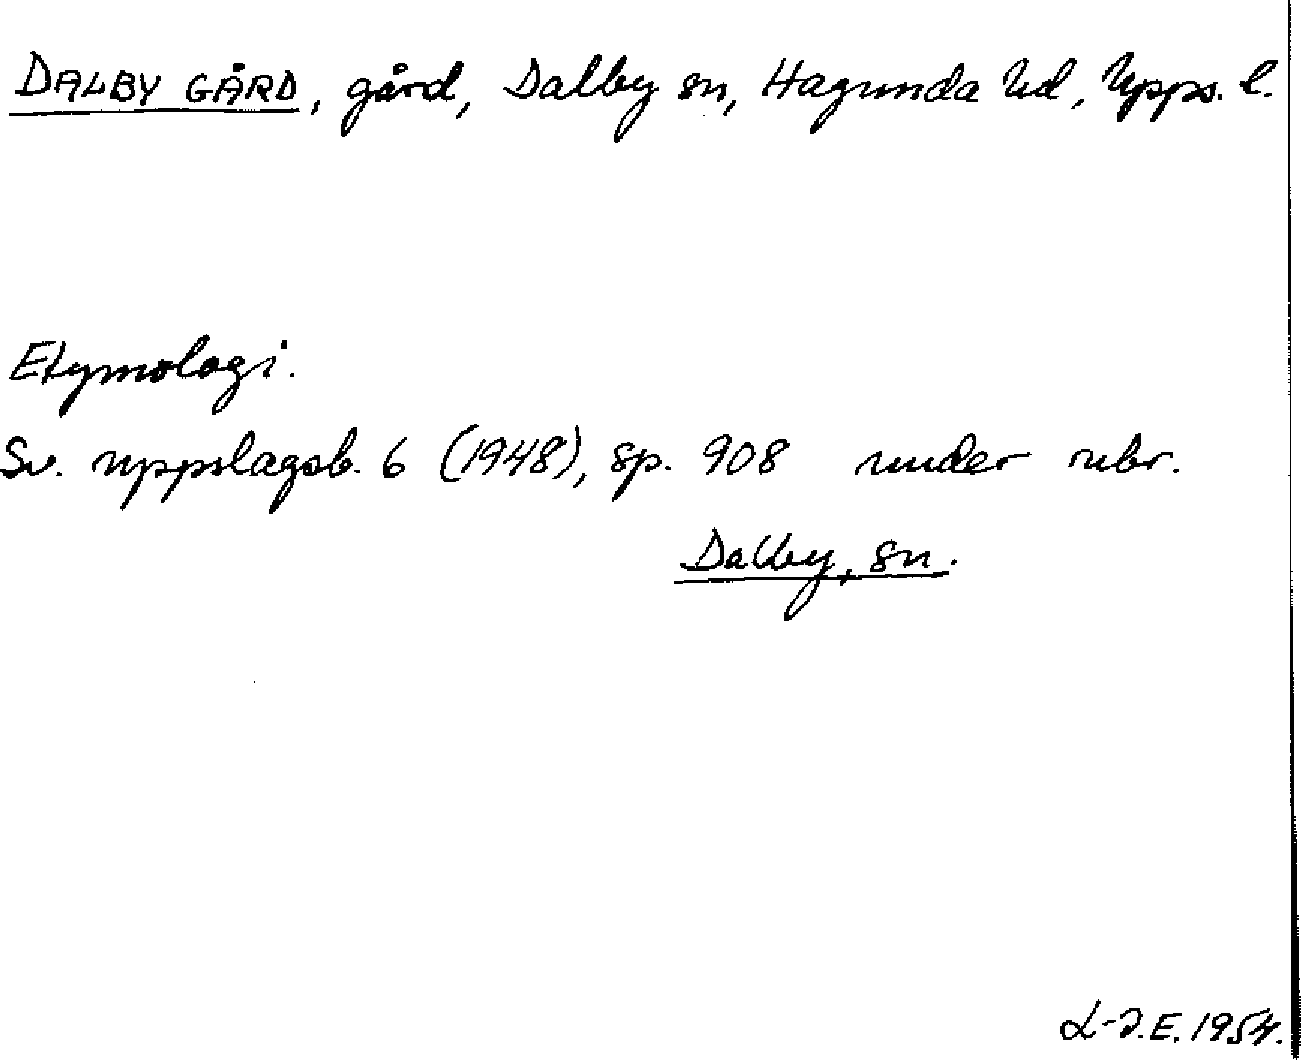 DALBY GÅRD, gård, Dalby sn, Hagunda hd, Upps. l.
Etymologi.
Sv. uppslagsb. 6 (1948), sp. 908 under rubr.
Dalby, sn.
L-I.E. 1954.